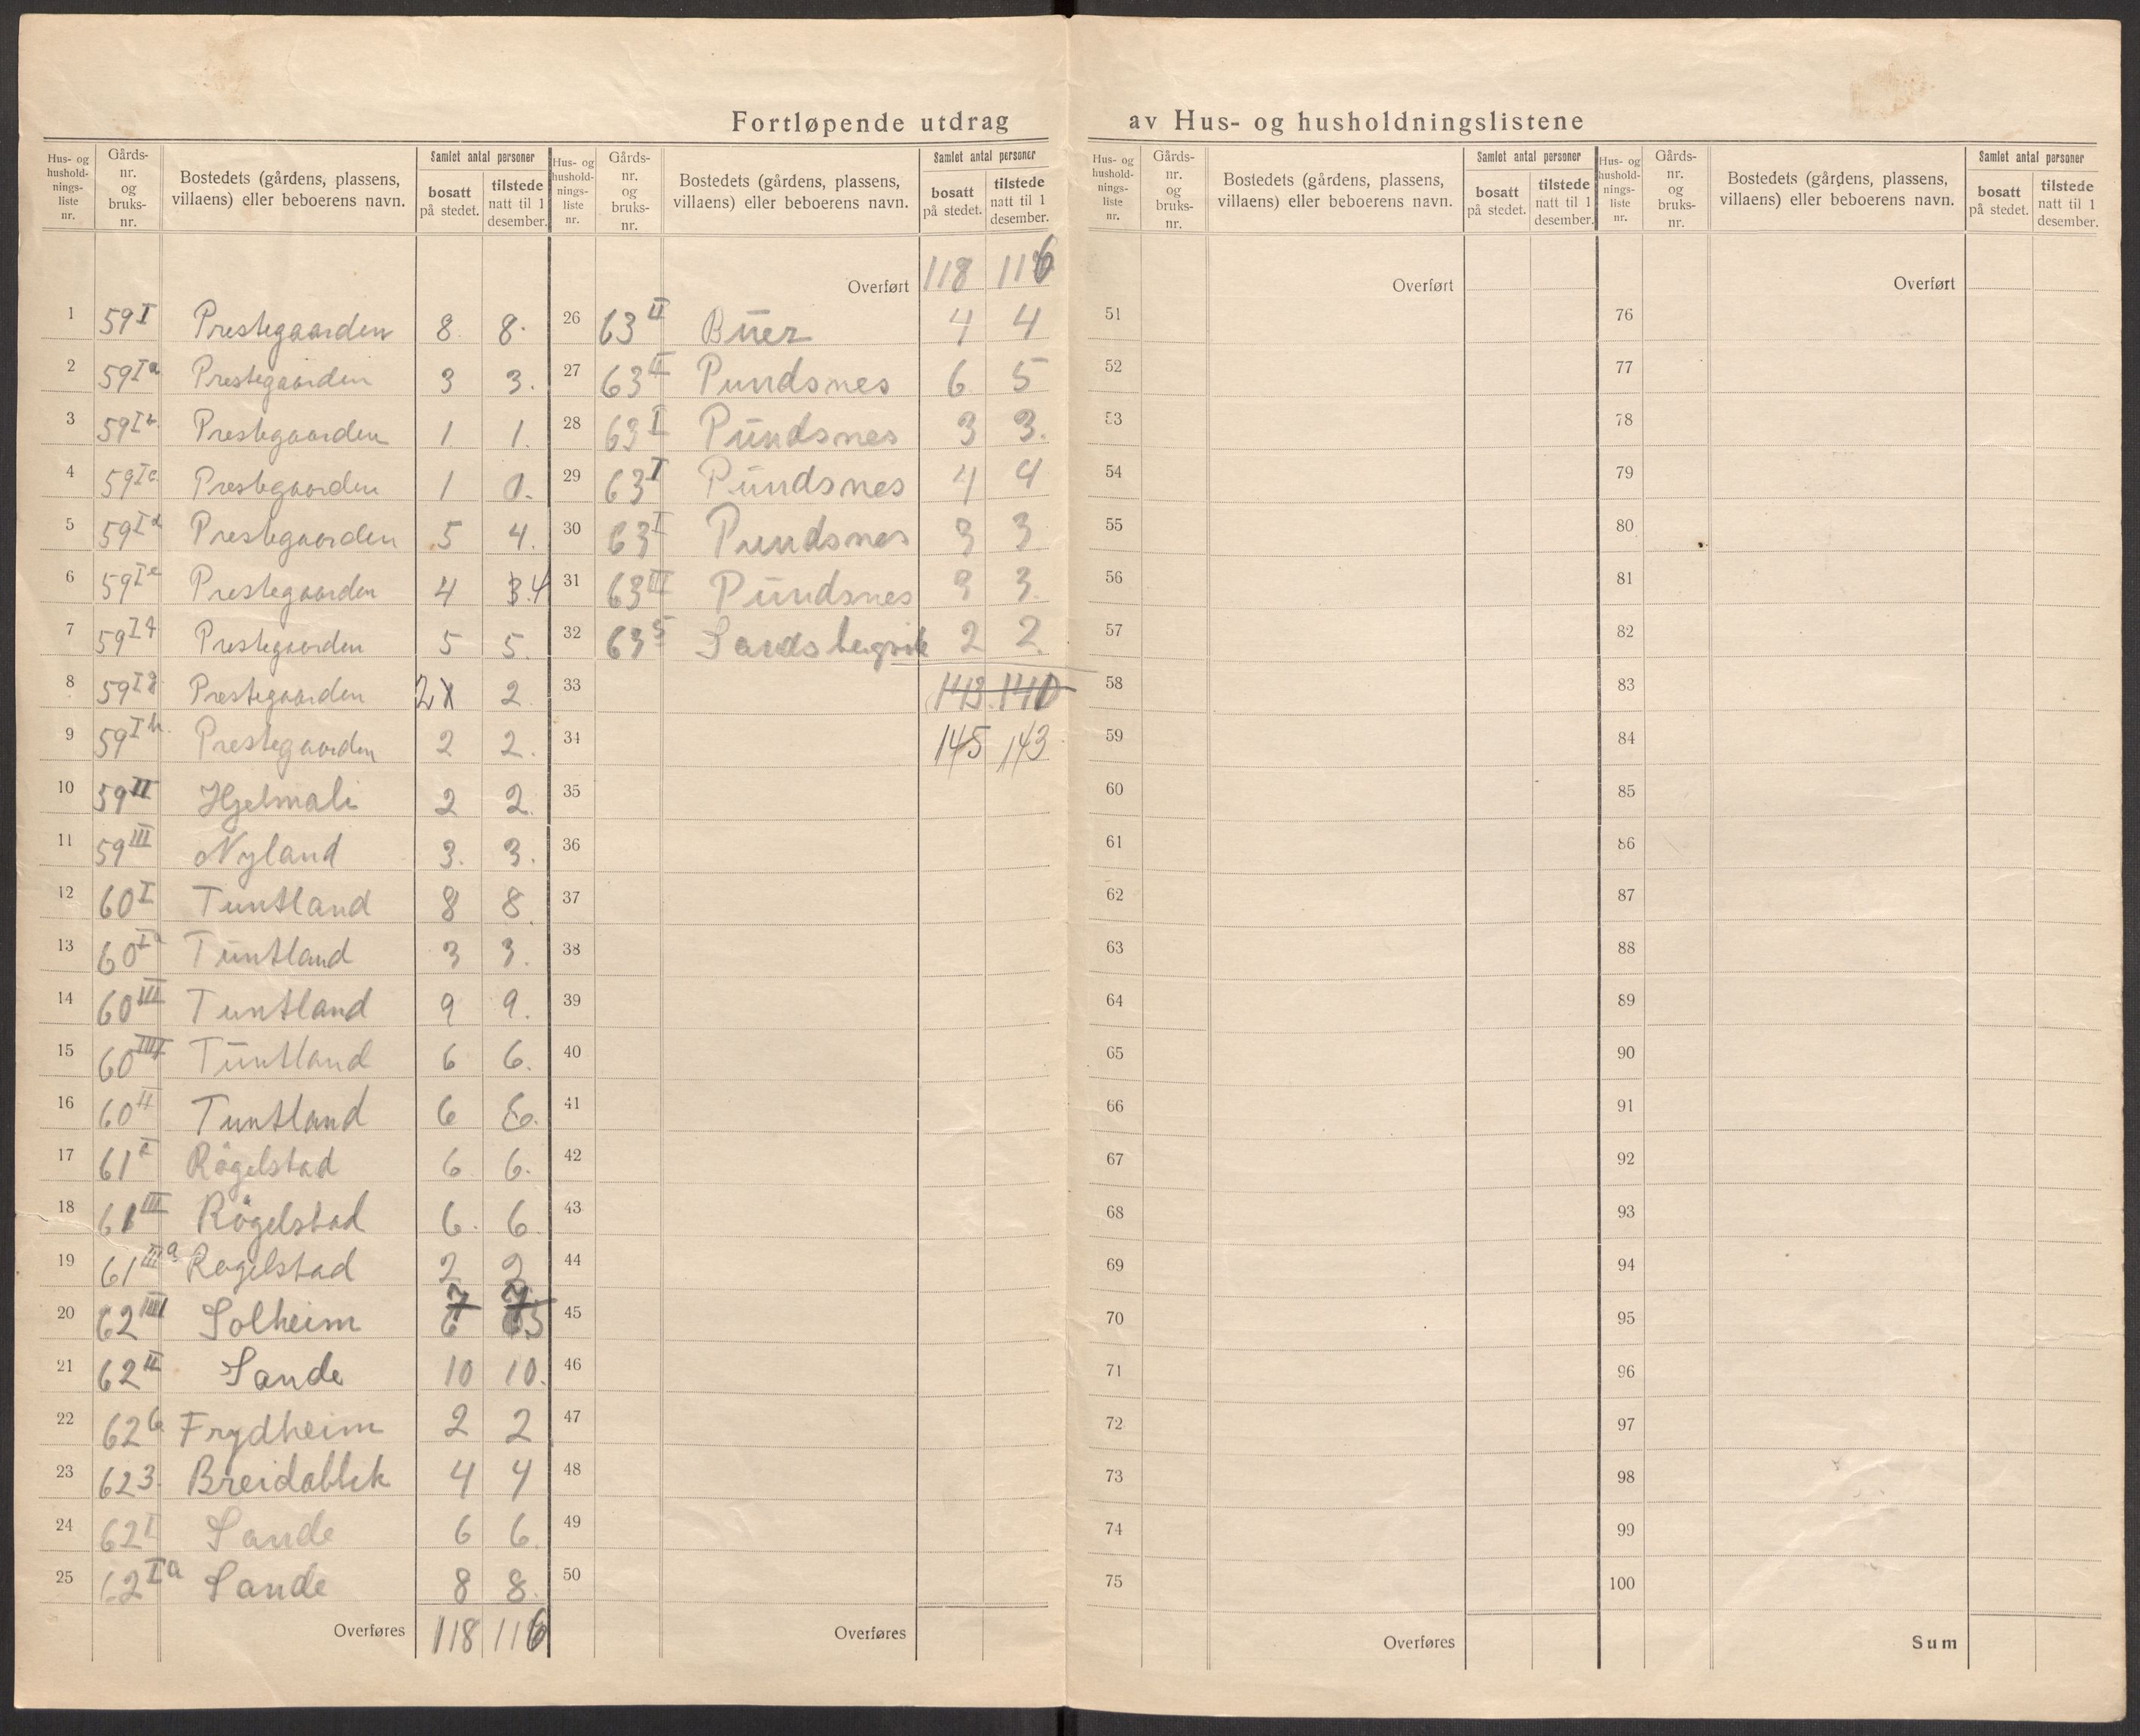 Fortløpende utdrag av Hus- og husholdningslistene
Hus- og hushold- nings- liste nr. | Gårds- nr. og bruks- nr. | Bostedets (gårdens, plassens, villaens) eller beboerens navn. | Samlet antal personer | bosatt på stedet. | tilstede natt til 1 desember.
1 59 I Prestegaarden 8. 8.
2 59 Ia Prestegaarden 3 3.
3 59 Ib Prestegaarden 1. 1.
4 59 Ic Prestegaarden 1 0.
5 59 Id Prestegaarden 5 4.
6 59 Ie Prestegaarden 4 3.4
7 59 If Prestegaarden 5 5.
8 59 Ig Prestegaarden 2 2
9 59 Ih Prestegaarden 2 2.
10 59 II Hjelmali 2 2
11 59 III Nyland 3. 3.
12 60 I Tuntland 8 8
13 60 Ia Tuntland 3 3.
14 60 III Tuntland 9 9.
15 60 IIII Tuntland 6 6.
16 60 II Tuntland 6 6.
17 61 Rögelstad 6 6.
18 61 III Rögelstad 6. 6
19 61 IIIa Rogelstad 2 2
20 62 IIII Solheim 7 7 6 5
21 62 II Sande 10 10.
22 62 6 Frydheim 2 2
23 62 3. Breidablik 4 4
24 62 I Sande 6 6
25 62 Ia Sande 8 8.
Overføres 118 116
Hus- og hushold- nings- liste nr. | Gårds- nr. og bruks- nr. | Bostedets (gårdens, plassens, villaens) eller beboerens navn. | Samlet antal personer | bosatt på stedet. | tilstede natt til 1 desember.
Overført 118 116
26 63 II Buer 4 4
27 63 II Pundsnes 6 5
28 63 I Pundsnes 3 3.
29 63 I Pundsnes 4 4
30 63 I Pundsnes 3 3
31 63 III Pundsnes 3 3.
32 63 5 Sandsbergvik 2 2.
33 143. 140
34 145 143
35
36
37
38
39
40
41
42
43
44
45
46
47
48
49
50
Overføres
Hus- og hushold- nings- liste nr. | Gårds- nr. og bruks- nr. | Bostedets (gårdens, plassens, villaens) eller beboerens navn. | Samlet antal personer | bosatt på stedet. | tilstede natt til 1 desember.
Overført
51
52
53
54
55
56
57
58
59
60
61
62
63
64
65
66
67
68
69
70
71
72
73
74
75
Overføres
Hus- og hushold- nings- liste nr. | Gårds- nr. og bruks- nr. | Bostedets (gårdens, plassens, villaens) eller beboerens navn. | Samlet antal personer | bosatt på stedet. | tilstede natt til 1 desember.
Overført
76
77
78
79
80
81
82
83
84
85
86
87
88
89
90
91
92
93
94
95
96
97
98
99
100
Sum